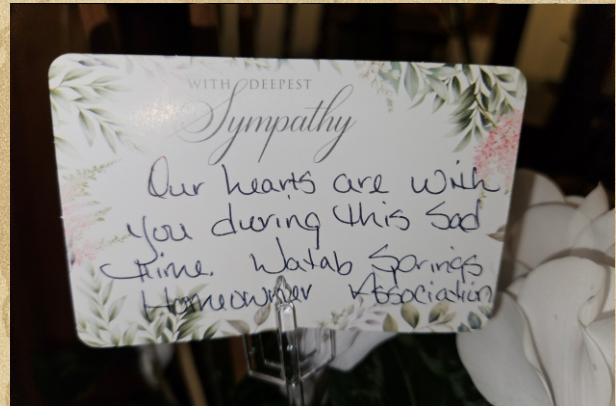 WITH DEEPEST
Sympathy
Our hearts are with
you during this Sad
time. Watab Springs
Homeowner Association